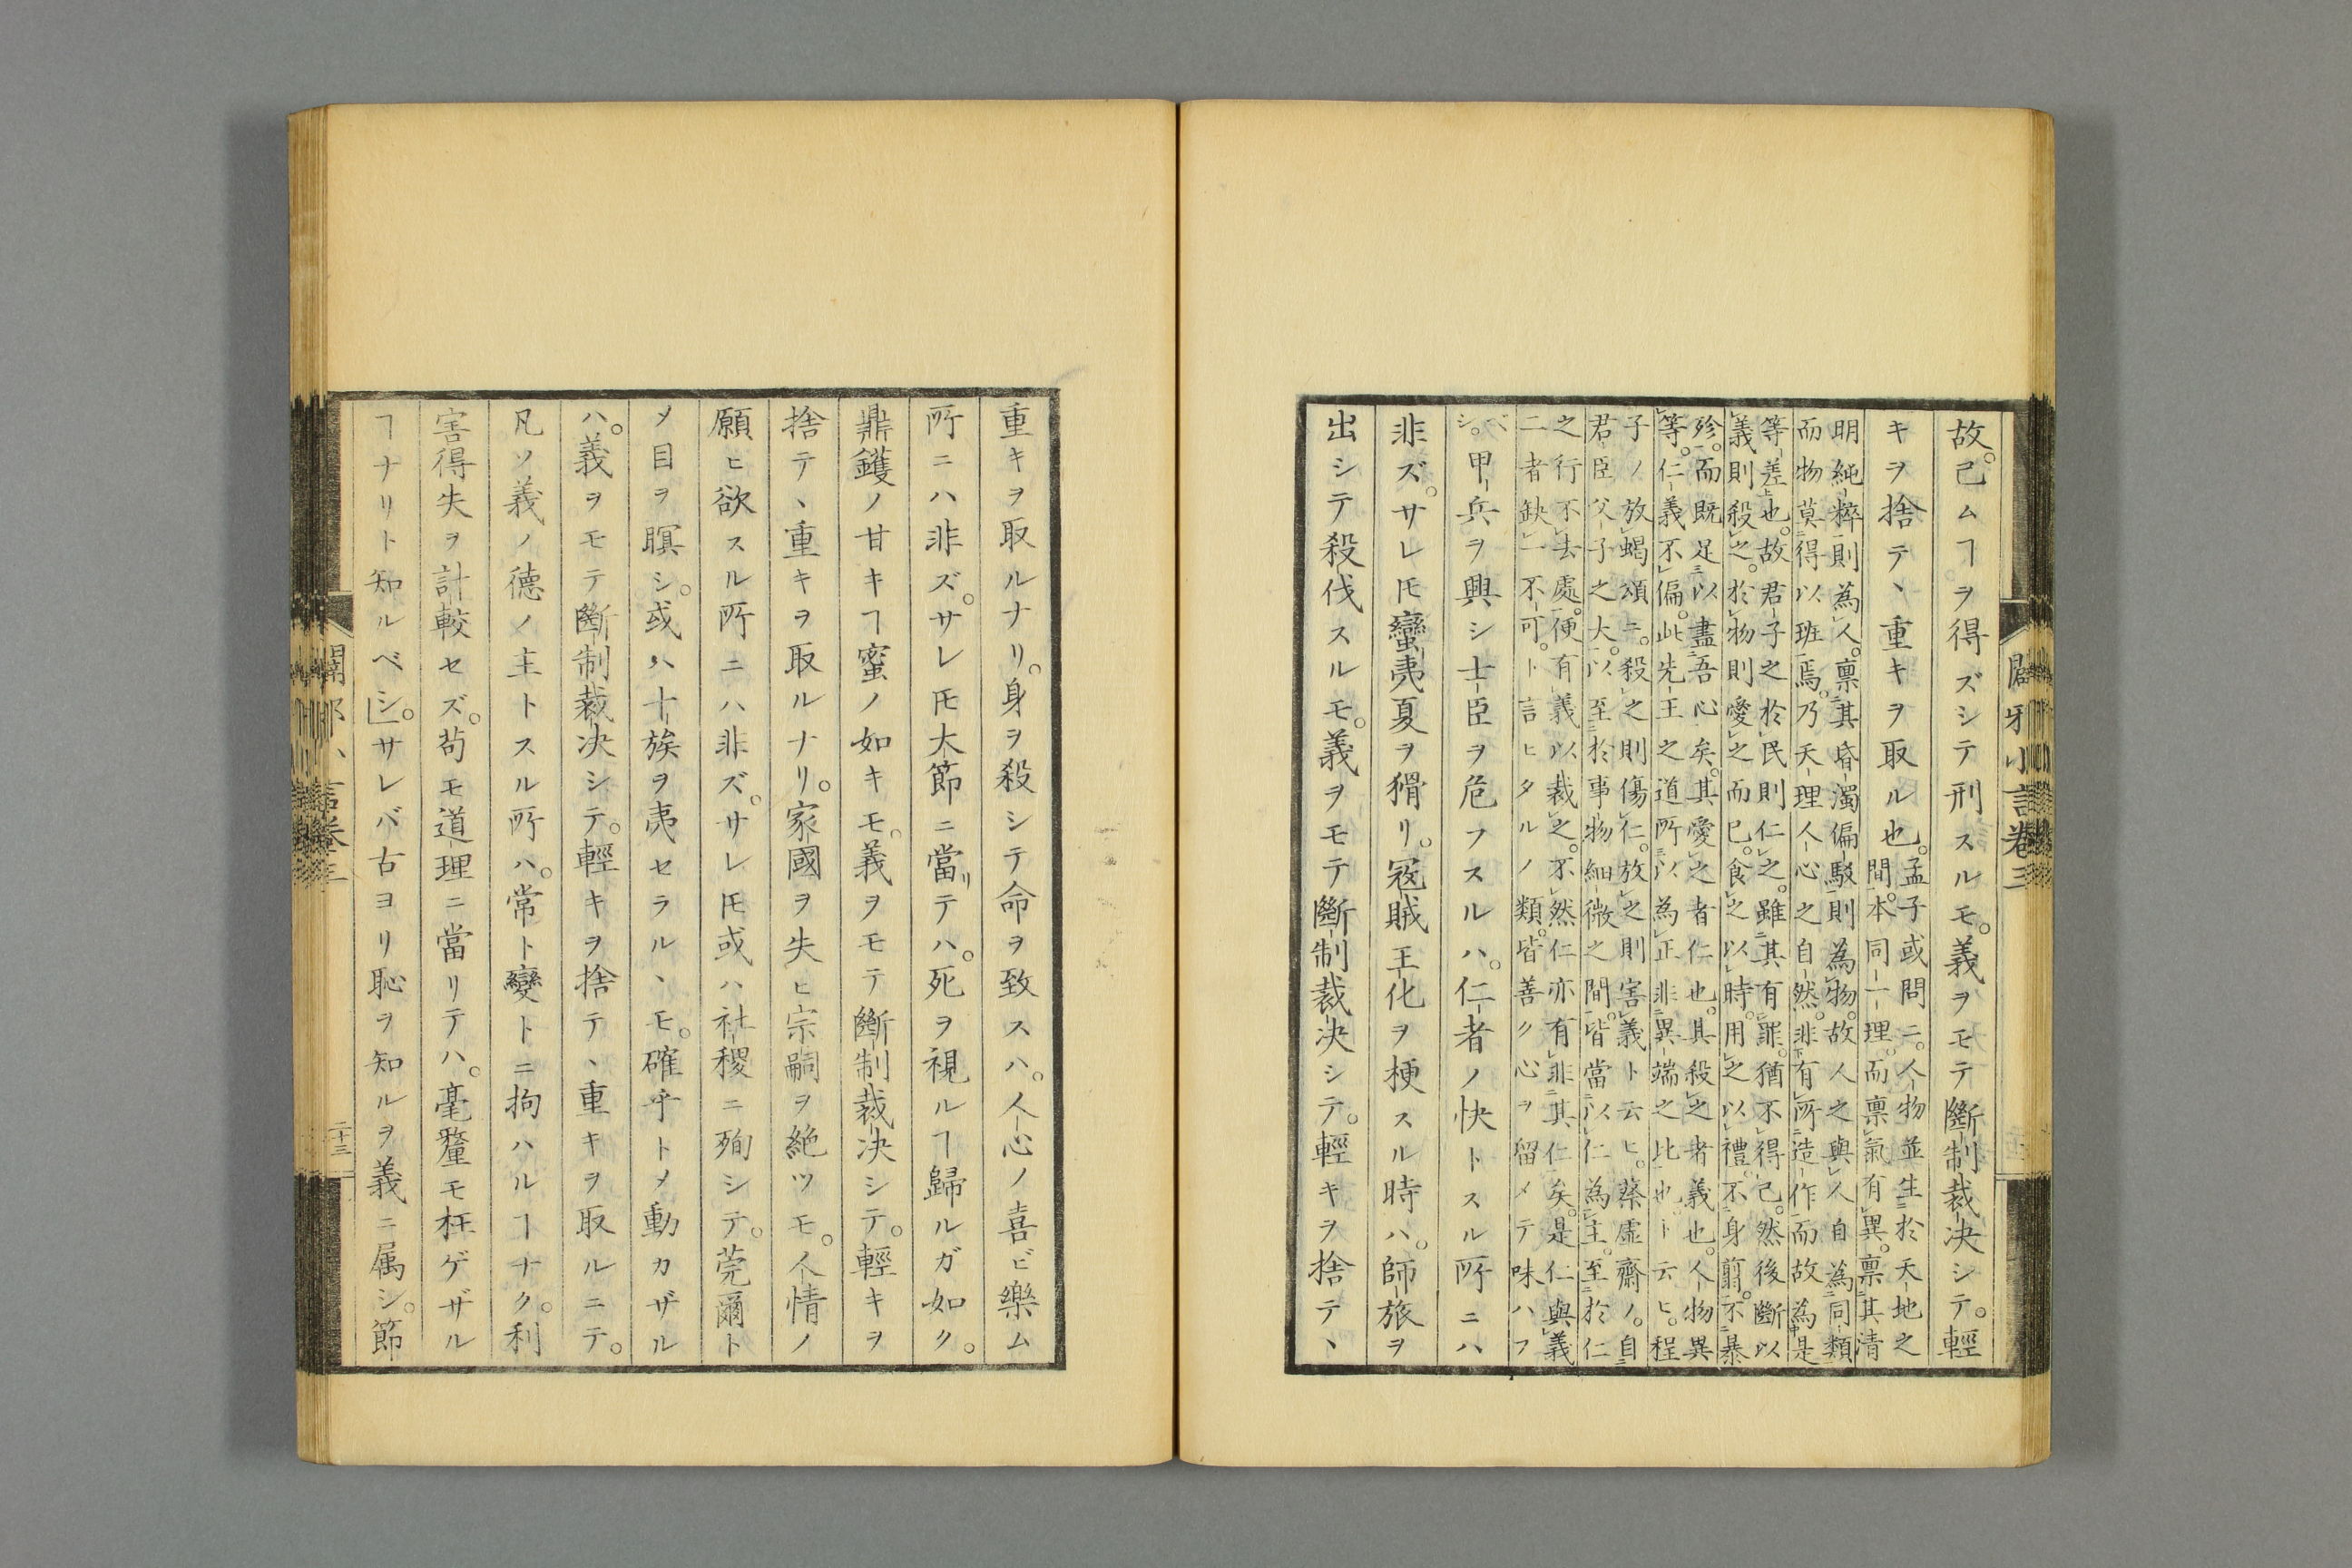 故。已ムヿヲ得ズシテ刑スルモ。義ヲモテ斷制裁决シテ。輕
キヲ捨テヽ重キヲ取ル也。孟子或問ニ。人物並生於天地之
間。本同一理。而禀氣有異。禀其清
明純粹則為人。禀其昏濁偏駁則為物。故人之與人自為同類
而物莫得以班焉。乃天理人心之自然。非有所造作而故為是
等差也。故君子之於民則仁之。雖其有罪。猶不得已。然後斷以
義則殺之。於物則愛之而已。食之以時。用之以禮。不身翦。不暴
殄。而既足以盡吾心矣。其愛之者仁也。其殺之者義也。人物異
等。仁義不偏。此先王之道所以為正非異端之比也ト云ヒ。程
子ノ放蝎頌ニ。殺之則傷仁。放之則害義ト云ヒ。蔡虛齋ノ。自
君臣父子之大。以至於事物細微之間。皆當以仁為主。至於仁
之行不去處。便有義以裁之。不然仁亦有非其仁矣。是仁與義
二者缺一不可。ト言ヒタルノ類。皆善ク心ヲ留メテ味ハフ
ベシ。甲兵ヲ興シ士臣ヲ危フスルハ。仁者ノ快トスル所ニハ
非ズ。サレ𪜈蠻夷夏ヲ猾リ。冦賊王化ヲ梗スル時ハ。師旅ヲ
出シテ殺伐スルモ。義ヲモテ斷制裁决シテ。輕キヲ捨テヽ
重キヲ取ルナリ。身ヲ殺シテ命ヲ致スハ。人心ノ喜ビ樂ム
所ニハ非ズ。サレ𪜈大節ニ當リテハ。死ヲ視ルヿ歸ルガ如ク。
鼎鑊ノ甘キヿ蜜ノ如キモ。義ヲモテ斷制裁决シテ。輕キヲ
捨テヽ重キヲ取ルナリ。家國ヲ失ヒ宗嗣ヲ絶ツモ。人情ノ
願ヒ欲スル所ニハ非ズ。サレ𪜈或ハ社稷ニ殉シテ。莞爾ト
メ目ヲ瞑シ。或ハ十族ヲ夷セラルヽモ。確乎トメ動カザル
ハ。義ヲモテ斷制裁决シテ。輕キヲ捨テヽ重キヲ取ルニテ。
凡ソ義ノ德ノ主トスル所ハ。常ト變トニ拘ハルヿナク。利
害得失ヲ計較セズ。苟モ道理ニ當リテハ。毫釐モ枉ゲザル
ヿナリト知ルベシ。サレバ古ヨリ恥ヲ知ルヲ義ニ属シ。節
二十三